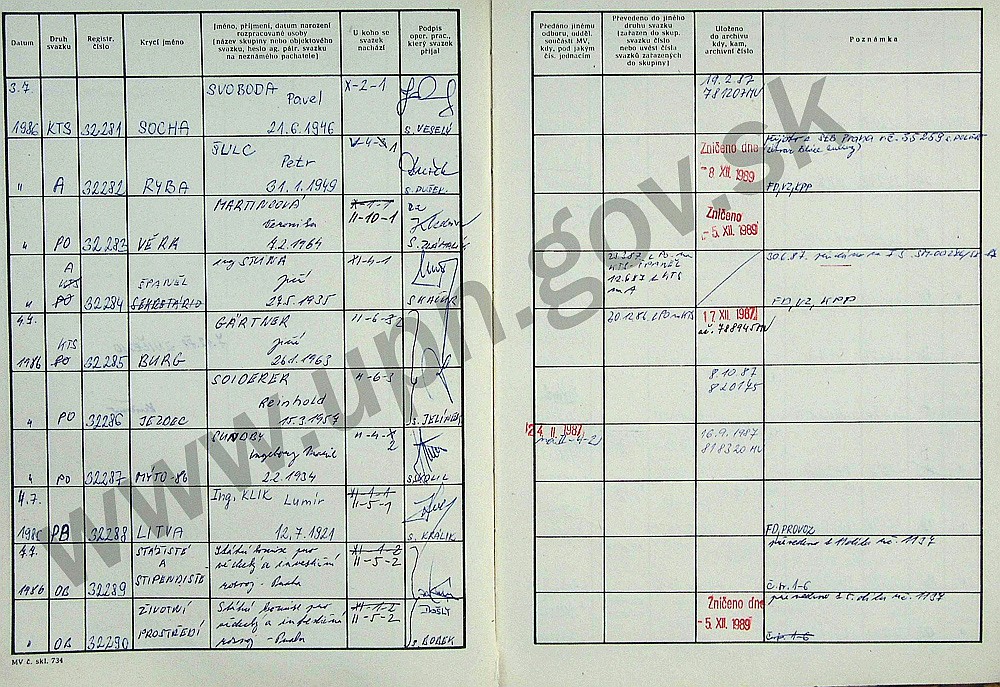 Datum
Druh svazku
Registr. číslo
Krycí jméno
Jméno, příjmení, datum narození
rozpracované osoby
(název skupiny nebo objektového
svazku, heslo ag. pátr. svazku
na neznámého pachatele)
U koho se
svazek
nachází
Podpis
oper. prac.,
který svazek
přijal
Předáno jinému
odboru, udděl.
součásti MV,
kdy, pod jakým
čís. jednacím
Převedeno do jiného
druhu svazku
(zařazen do skup.
svazku číslo
nebo uvést čísla
svazků zařazených
do skupiny)
Uloženo
do archivu
kdy, kam,
archivní číslo
Poznámka
3.7.
SVOBODA
Pavel
X-2-1
19.2.87
781207MV
1986 KTS 32281 SOCHA 21.6.1946 S. VESELÝ
ŠULC
Petr
V-4-3 1
Zničeno dne
- 8 XII. 1989
" A 32282 RYBA 31.1.1949 S. DUŠEK.
FD, VZ, KPP
MARTINCOVÁ
Veronika
XI-1-1
II-10-1
za
Zničeno
- 5. XII. 1989
" PO 32283 VĚRA 4.2.1964
A
KTS
ing STUNA
Jiří
XI-4-1
ŠPANĚL
" PO 32284 SEKRETÁŘ 29.5.1935 S KAČUR
12.687 z KTS
na A
30.6.87.
FD, VZ, KPP
4.7.
GÄRTNER
Jiří
II-6-3 2
20.12.86 z PO na KTS
17 XII. 1987
ač. 788945MV
KTS
1986 PO 32285 BURG 26.1.1963
SOIDERER
Reinhold
II-6-3
8.10.87
820145
" PO 32286 JEZDEC 15.3.1954 S. JELÍNEK
II-4-X
2
24. II. 1987
II-4-2
16.9.1987
818320 MV
" PO 32287 MÝTO-86 2.2.1934
4.7.
Ing. KLIK
Lumír
XI-1-1
II-5-1
1986 PB 32288 LITVA 12.7.1921 S. KRÁLIK
FD, PROVOZ
4.7.
STÁŽISTÉ
A
STIPENDISTÉ
Státní komise pro
vědecký a investiční
rozvoj - Praha
XI-1-2
II-5-2
1986 OB 32289
převedeno č. 1137
č.p. 1-6
ŽIVOTNÍ
PROSTŘEDÍ
Státní komise pro
vědecký a investiční
rozvoj - Praha
XI-1-2
II-5-2
DOŠLÝ
" OB 32290 S. BOBEK
Zničeno dne
- 5. XII. 1989
převedeno č. 1137
č.p. 1-6
MV č. skl. 734
www.upn.gov.sk